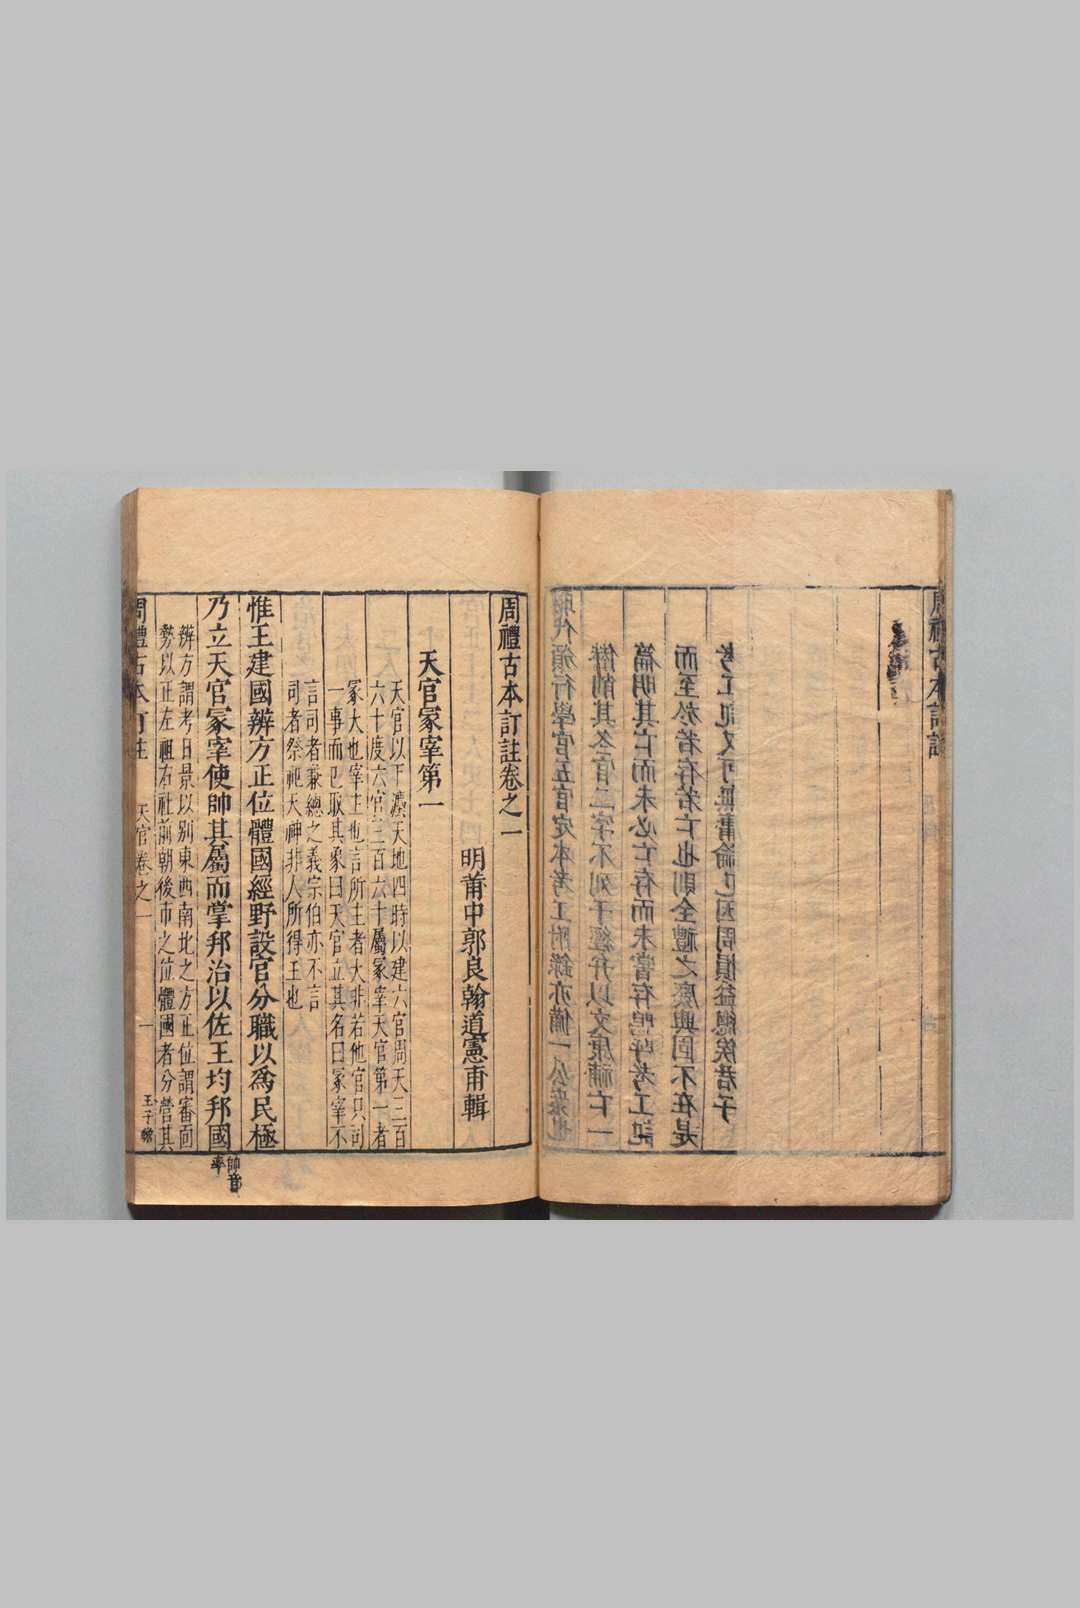 周禮古本訂註
頒行學官五官定本考工附錄亦備一公案也
削其冬官二字不列于經弁以文康補亡一
篇明其亡而未必亡存而未嘗存嗚呼考工記
而至於若存若亡也則全禮之廢興固不在是
考工記又可無庸論已因周慎益總俟君子
周禮古本訂註卷之一
明莆中郭良翰道憲甫輯
天官冢宰第一
天官以下灋天地四時以建六官周天三百
六十度六官三百六十屬冢宰天官第一者
冢大也宰主也言所主者大非若他官只司
一事而已取其象曰天官立其名曰冢宰不
言司者兼總之義宗伯亦不言
司者祭祀天神非人所得主也
惟王建國辨方正位體國經野設官分職以爲民極
乃立天官冢宰使帥其屬而掌邦治以佐王均邦國
帥音
率
辨方謂考日景以別東西南北之方正位謂審面
勢以正左祖右社前朝後市之位體國者分營其
周禮古本訂註
天官卷之一
一